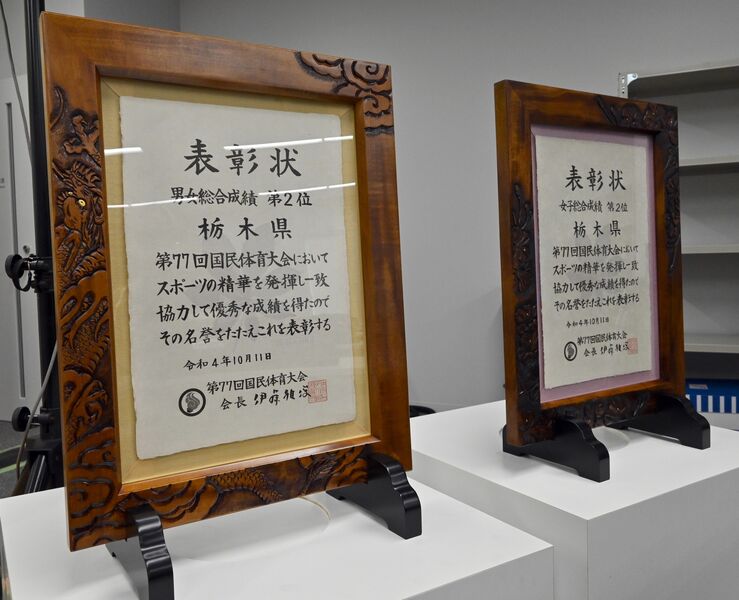 表彰状
男女総合成績 第2位
栃木県
第77回国民体育大会において
スポーツの精華を発揮し一致
協力して優秀な成績を得たので
その名誉をたたえこれを表彰する
令和4年10月11日
第77回国民体育大会
会長 伊藤雅俊
表彰状
女子総合成績 第2位
栃木県
第77回国民体育大会において
スポーツの精華を発揮し一致
協力して優秀な成績を得たので
その名誉をたたえこれを表彰する
令和4年10月11日
第77回国民体育大会
会長 伊藤雅俊